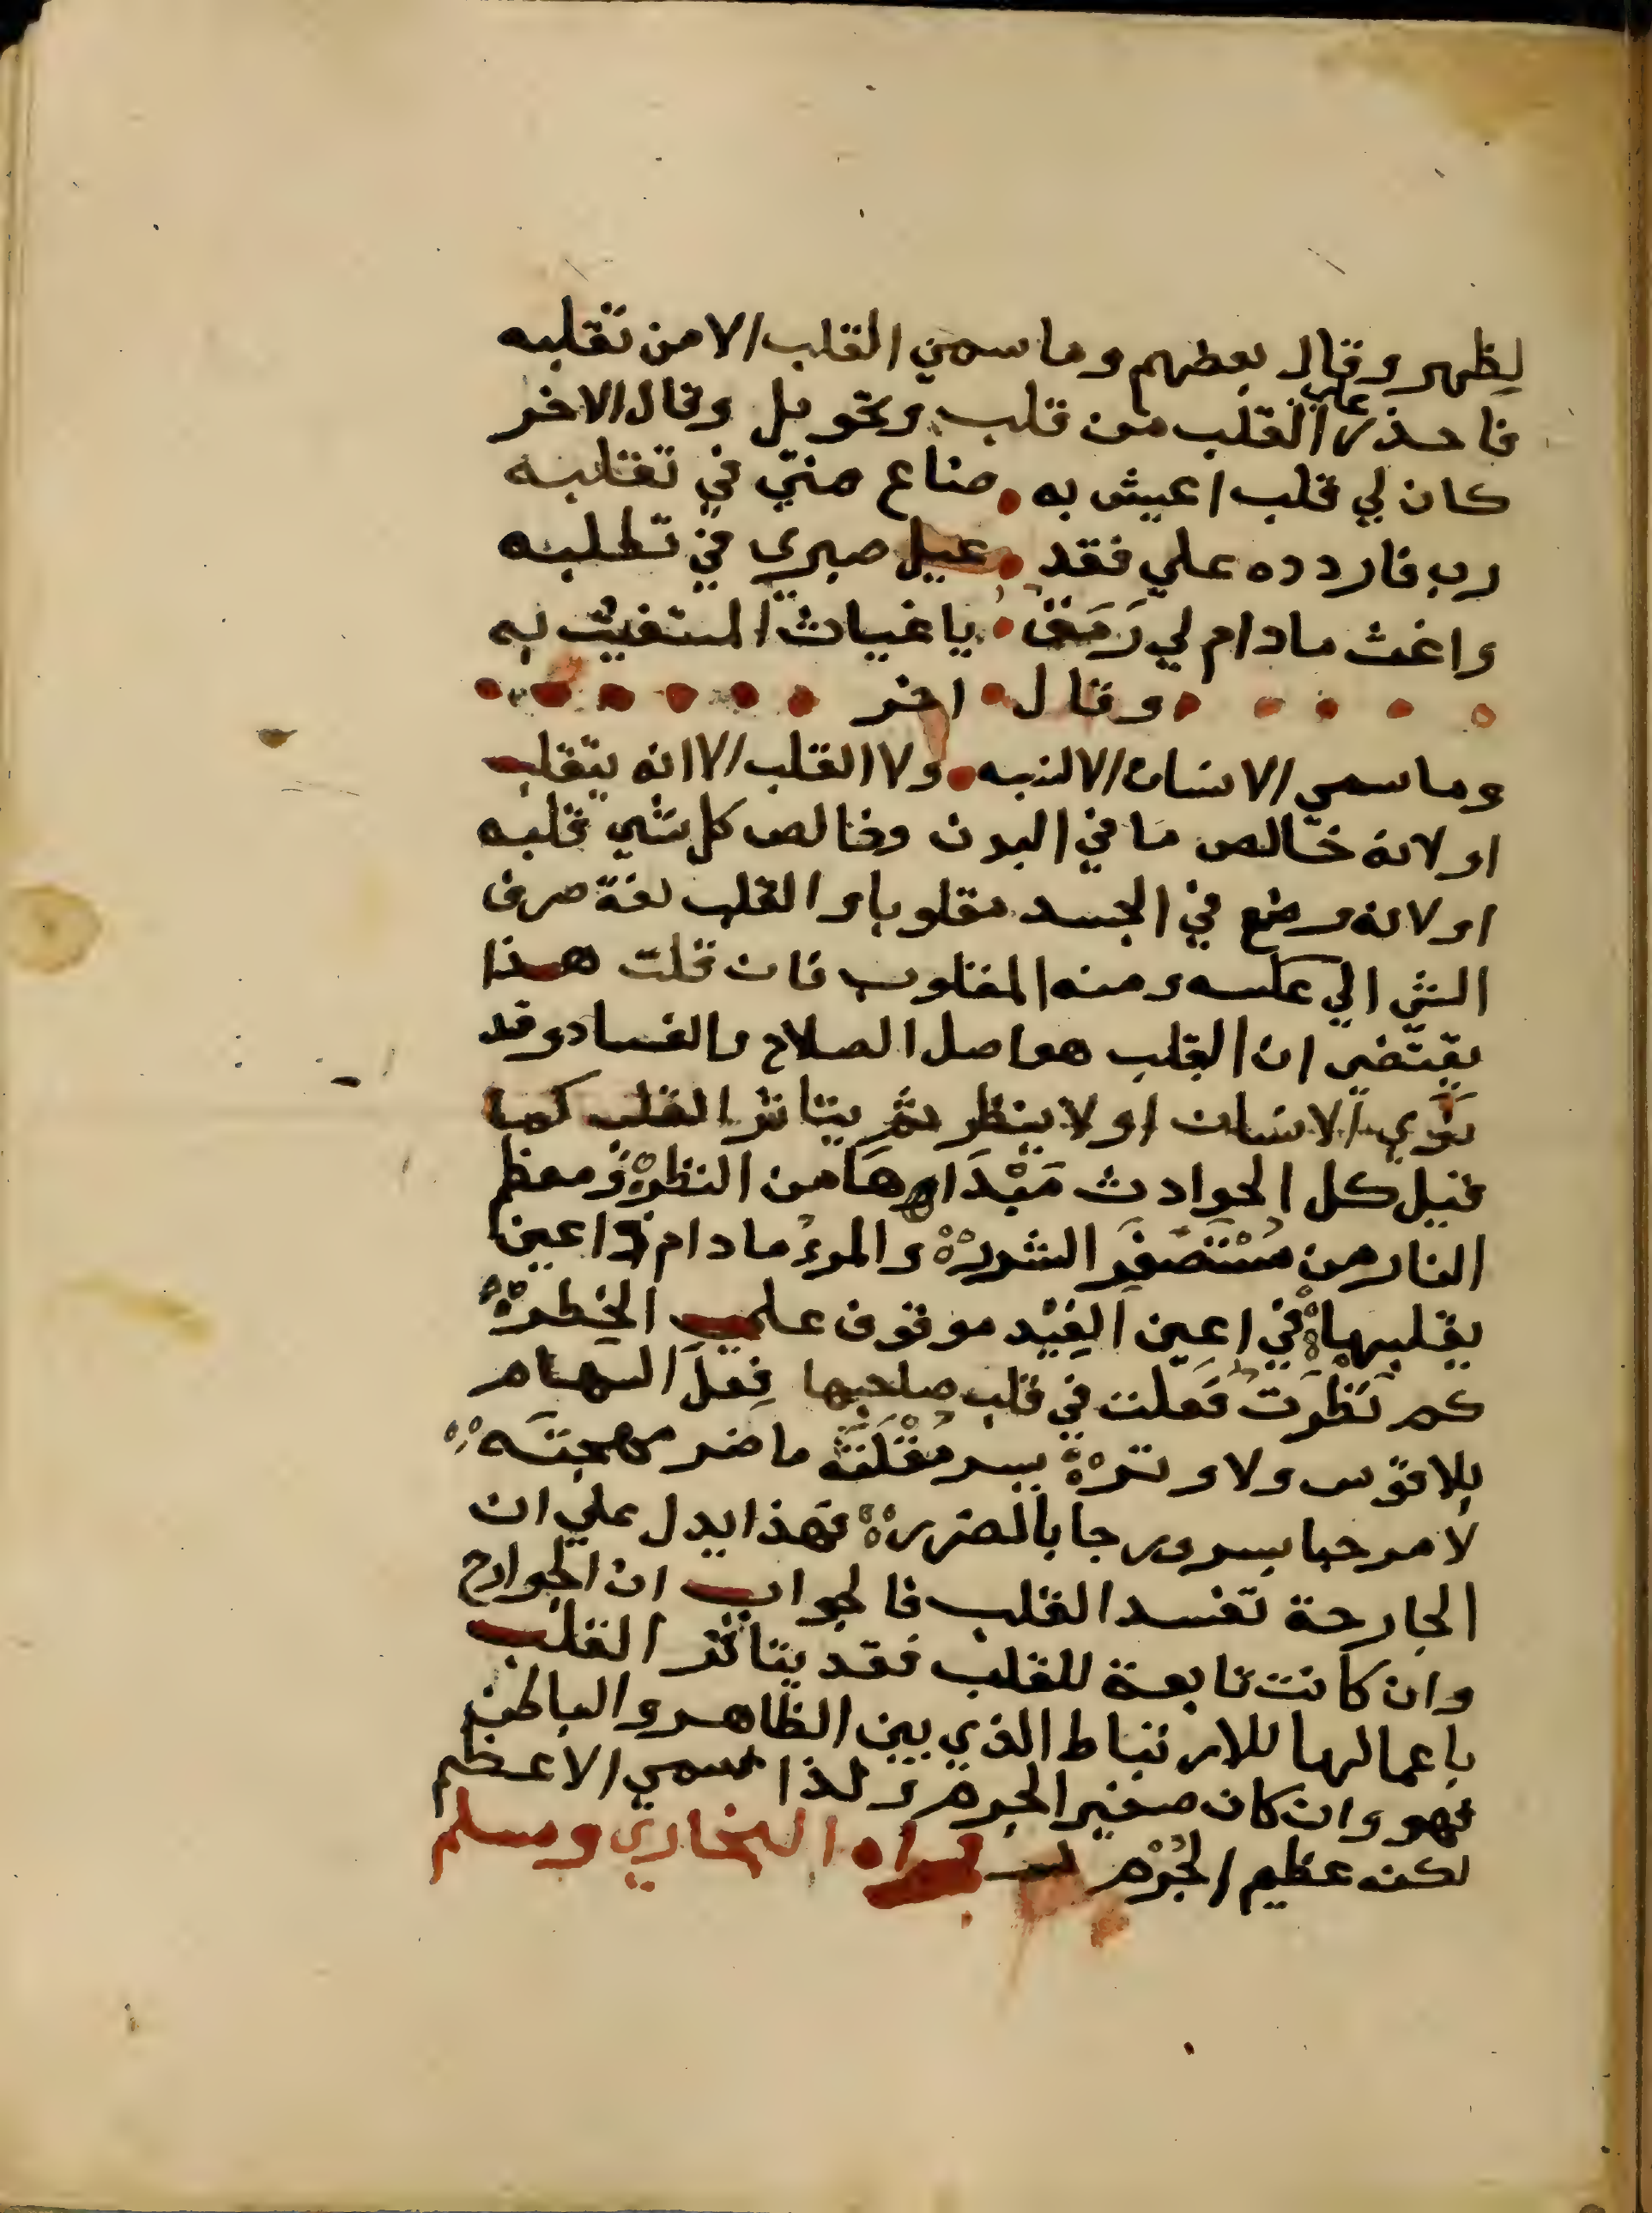 لظهر وقال بعضهم وما سمي القلب الا من تقلبه
فاحذر على القلب من قلب وتحويل وقال الاخر
كان لي قلب اعيش به • ضاع مني في تقلبه
رب فاردده علي فقد • عيل صبري في تطلبه
واغث مادام لي رَمَق • يا غياث المستغيث به
وقال اخر
وما سمي الانسان الا لنسيه • ولا القلب الا انه يتقلب
او لانه خالص ما في البدن وخالص كل شي قلبه
او لانه وضع في الجسد مقلوبا والقلب لغة صرف
الشي الي عكسه ومنه المقلوب فان قلت هذا
يقتضي ان القلب هو اصل الصلاح والفساد وقد
نرَي الانسان اولا ينظر ثم يتاثر القلب كما
قيل كل الحوادث مَبْدَاوهَا من النظرهْ ومعظم
النار من مُسْتَصغَر الشررهْ والمرءُ مادام ذا عين
يقلبها في اعين الغِيْد موقوف علي الخطرهْ
كم نَظرَت فَعلت في قلب صاحبها فِعلَ السهام
بلا قوس ولا وترهْ يسر مُقْلَتَهُ ما ضر مهجتَه
لا مرحبا بسرور جا بالضررهْ فهذا يدل علي ان
الجارحة تفسد القلب فالجواب ان الجوارح
وان كانت تابعة للقلب فقد يتاثر القلب
باعمالها للارتباط الذي بين الظاهر والباطن
فهو وان كان صغير الجرم ولذا سمي الاعظم
لكنه عظيم الجُرْم رواه البخاري ومسلم